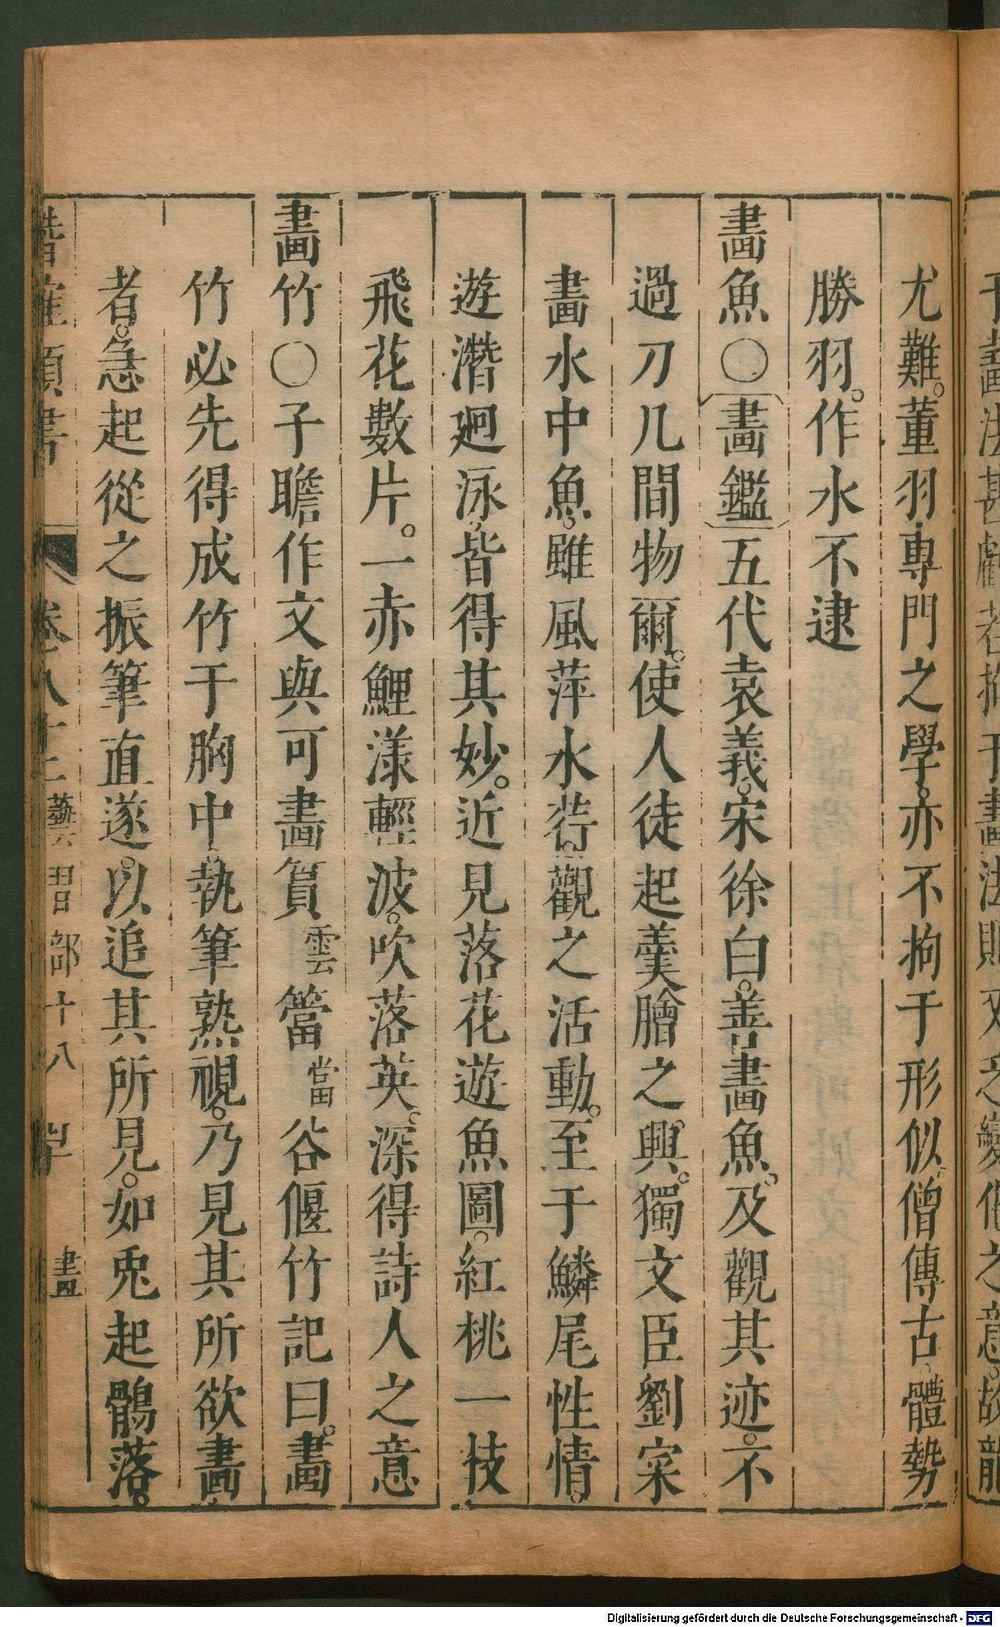 尤難。董羽專門之學。亦不拘于形似。僧傳古。體勢
勝羽。作水不逮
畫魚〇畫鑑五代袁義。宋徐白。善畫魚。及觀其迹。不
過刀几間物爾。使人徒起羹膾之興。獨文臣劉寀
畫水中魚。雖風萍水荇。觀之活動。至于鱗尾性情。
遊潛廻泳。皆得其妙。近見落花遊魚圖。紅桃一技
飛花數片。一赤鯉漾輕波。吹落英。深得詩人之意
畫竹〇子瞻作文與可畫篔雲簹當谷偃竹記曰。畫
竹必先得成竹于胸中。執筆熟視。乃見其所欲畫
者。急起從之。振筆直遂。以追其所見。如兎起鶻落。
潛確類書 卷八十二 藝習部十八 畫
Digitalisierung gefördert durch die Deutsche Forschungsgemeinschaft - DFG